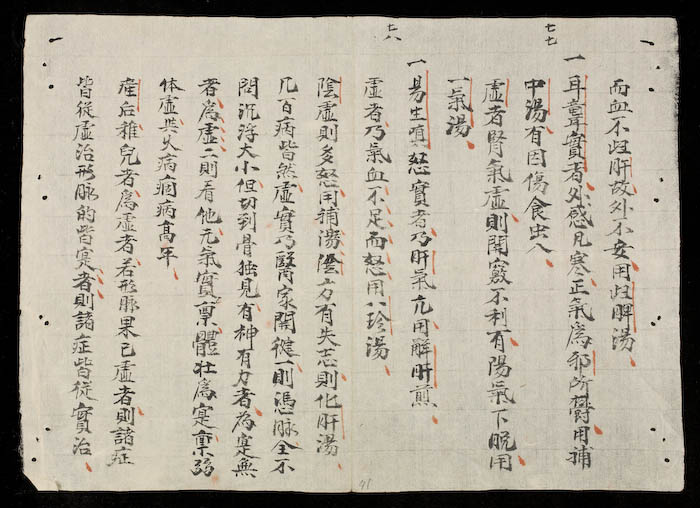 七七
而血不㱕肝故外不安用㱕脾湯
一耳聾實者外感凡寒正氣為邪所欝用補
中湯有因傷食出入
虛者腎氣虛則開竅不利有陽氣下脫用
一氣湯
一易生嗔怒實者乃肝氣亢用解肝煎
七八
虛者乃氣血不足而怒用八珍湯
陰虛則多怒用補湯陰方有失志則化肝湯
凡百病皆然虛實乃醫家開健一則憑脉全不
問沉浮大小但切到骨独見有神有力者為寔無
者為虛二則看他元氣實禀體壮為寔禀弱
体虛共久病痼病高年
産后稚兒者為虛者若形脉果已虛者則諸症
皆從虛治形脉的皆寔者則諸症皆從實治